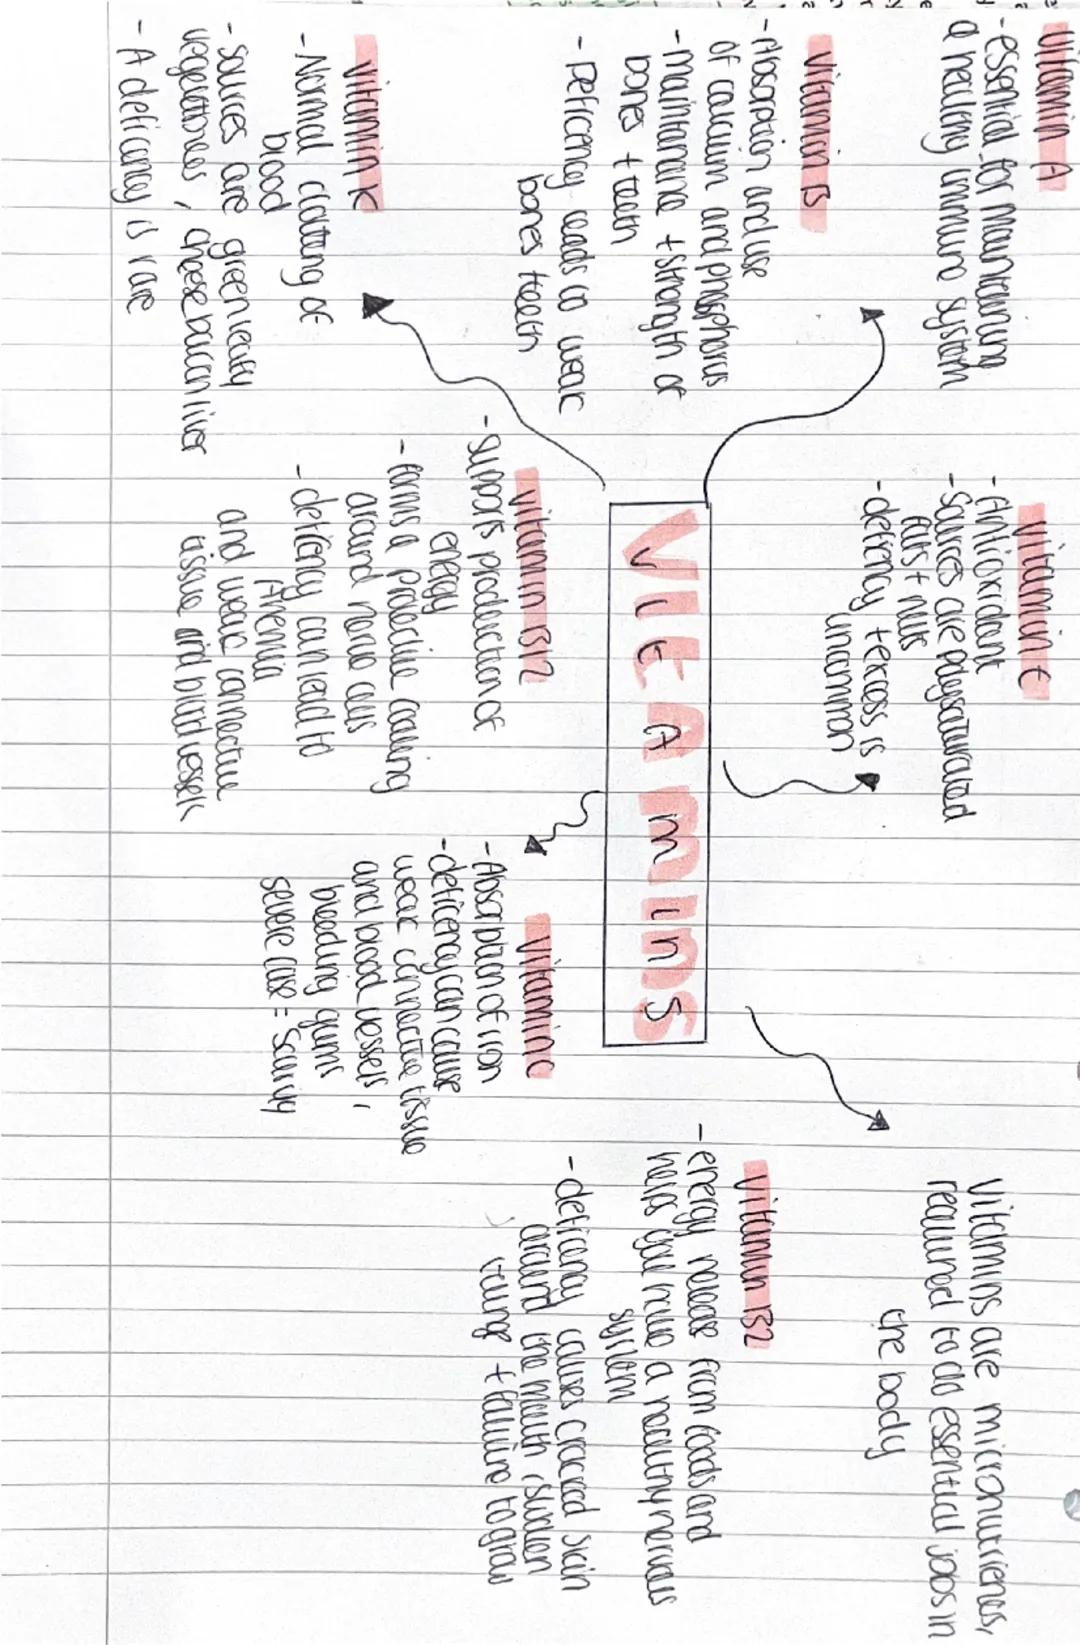 Vitamin A
- essential for maintaining
a healthy immune system
Vitamin B
- Absorption and use
of calcium and phosphorus
- maintanane + strength of
bones + teeth
- Deficency leads to weak
bones + teeth
Vitamin K
- Normal clotting of
blood
- sources are green leafy
vegetables, cheese bacon liver
- A deficancy is rare
Vitamin E
- Antioxidant
- Sources are polysaturated
fats + nuts
- deficency + excess is
uncommon
VitAmins
Vitamin B12
- supports production of
energy
- forms a protective coating
around nerve cells
- deficency can lead to
Anemia
and weak connective
tissue and blood vessels
Vitamin C
- Absorption of iron
- deficency can cause
weak connective tissue
and blood vessels,
bleeding gums
severe case = scurvy
Vitamins are micronutrients,
required to do essential jobs in
the body
Vitamin B2
- energy release from foods and
helps you have a healthy nervous
system
- deficancy causes cracked skin
around the mouth, swollen
tounge + failure to grow